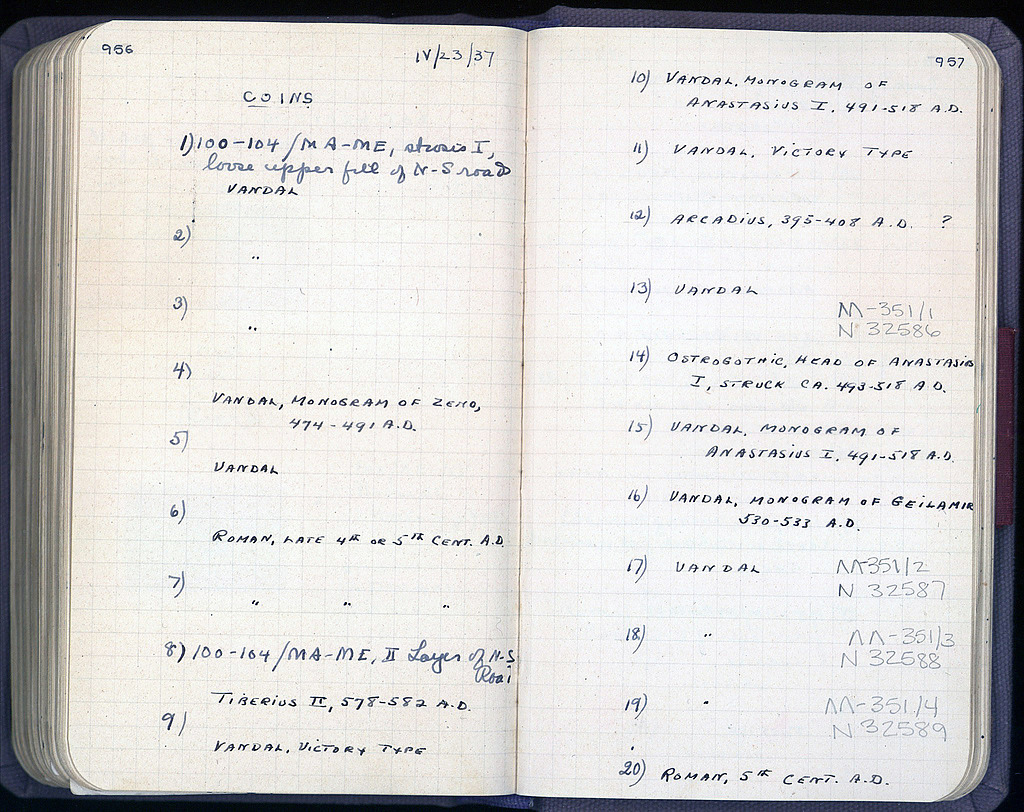 956
IV/23/37
COINS
1) 100-104/MA-ME, strosis I,
loose upper fill of N-S road
VANDAL
2)
"
3)
"
4)
VANDAL, MONOGRAM OF ZENO,
474-491 A.D.
5)
VANDAL
6)
ROMAN, LATE 4th OR 5th CENT. A.D.
7)
" " "
8) 100-104/MA-ME, II Layer of N-S
Road
TIBERIUS II, 578-582 A.D.
9)
VANDAL, VICTORY TYPE
957
10) VANDAL, MONOGRAM OF
ANASTASIUS I, 491-518 A.D.
11) VANDAL, VICTORY TYPE
12) ARCADIUS, 395-408 A.D. ?
13) VANDAL
M-351/1
N 32586
14) OSTROGOTHIC, HEAD OF ANASTASIUS
I, STRUCK CA. 493-518 A.D.
15) VANDAL, MONOGRAM OF
ANASTASIUS I, 491-518 A.D.
16) VANDAL, MONOGRAM OF GEILAMIR
530-533 A.D.
17) VANDAL M-351/2
N 32587
18) " M-351/3
N 32588
19) " M-351/4
N 32589
20) ROMAN, 5th CENT. A.D.